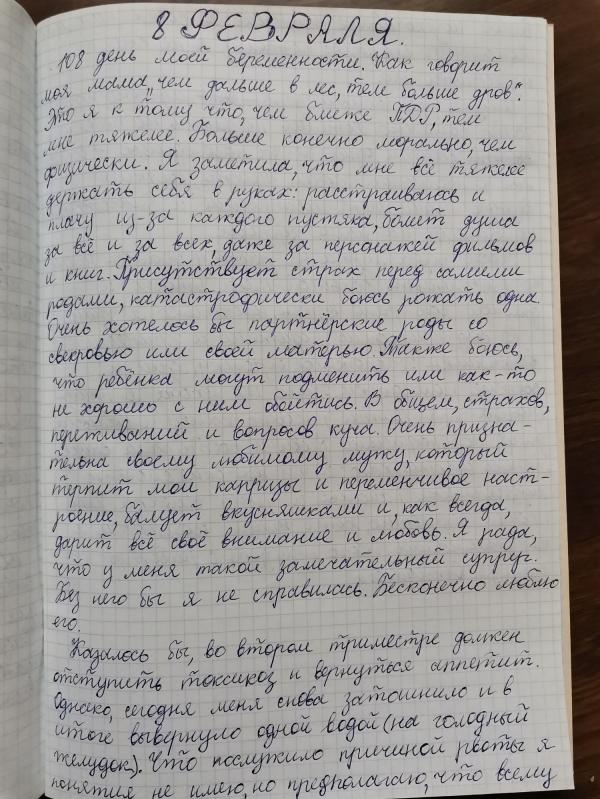 8 ФЕВРАЛЯ.
108 день моей беременности. Как говорит
моя мама „чем дальше в лес, тем больше дров".
Это я к тому что, чем ближе ПДР, тем
мне тяжелее. Больше конечно морально, чем
физически. Я заметила, что мне всё тяжелее
держать себя в руках: расстраиваюсь и
плачу из-за каждого пустяка, болит душа
за всё и за всех, даже за персонажей фильмов
и книг. Присутствует страх перед самими
родами, катастрофически боюсь рожать одна.
Очень хотелось бы партнёрские роды со
свекровью или своей матерью. Также боюсь,
что ребёнка могут подменить или как-то
не хорошо с ним обойтись. В общем, страхов,
переживаний и вопросов куча. Очень призна-
тельна своему любимому мужу, который
терпит мои капризы и переменчивое наст-
роение, балует вкусняшками и, как всегда,
дарит всё своё внимание и любовь. Я рада,
что у меня такой замечательный супруг.
Без него бы я не справилась. Бесконечно люблю
его.
Казалось бы, во втором триместре должен
отступить токсикоз и вернуться аппетит.
Однако, сегодня меня снова затошнило и в
итоге вывернуло одной водой (на голодный
желудок). Что послужило причиной рвоты я
понятия не имею, но предполагаю, что всему